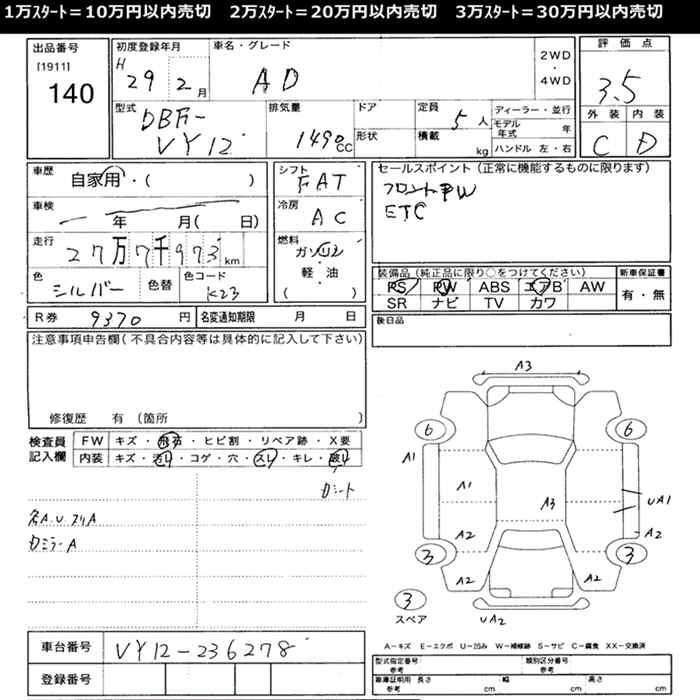 1万ｽﾀｰﾄ＝10万円以内売切　2万ｽﾀｰﾄ＝20万円以内売切　3万ｽﾀｰﾄ＝30万円以内売切
出品番号
[1911]
140
初度登録年月
H 29 2月
車名・グレード
AD
2WD
・
4WD
評価点
3.5
外装 内装
C D
型式
DBF-
VY12
排気量
1490cc
ドア
形状
定員
5人
積載
kg
ディーラー・並行
モデル年式 年
ハンドル 左・右
車歴
自家用・( )
車検
年 月( 日)
走行
27万7千973km
色
シルバー
色替
色コード
K23
シフト
FAT
冷房
AC
燃料
ガソリン
軽油
( )
セールスポイント（正常に機能するものに限ります）
フロントPW
ETC
装備品（純正品に限り○をつけてください）
PS PW ABS エアB AW
SR ナビ TV カワ
新車保証書
有・無
R券 9370円
名変通知期限 月 日
後日品
注意事項申告欄（不具合内容等は具体的に記入して下さい）
修復歴 有（箇所 ）
検査員
記入欄
FW キズ・飛石・ヒビ割・リペア跡・X要
内装 キズ・汚れ・コゲ・穴・スレ・キレ・破れ
A3
6
6
A1
A1
A3
UA1
A2
A2
3
3
A2
A2
3
スペア
UA2
車台番号
VY12-236278
登録番号
A－キズ E－エクボ U－凹み W－補修跡 S－サビ C－腐食 XX－交換済
型式指定番号
参考
類別区分番号
参考
車庫証明用
参考
長さ cm
幅 cm
高さ cm